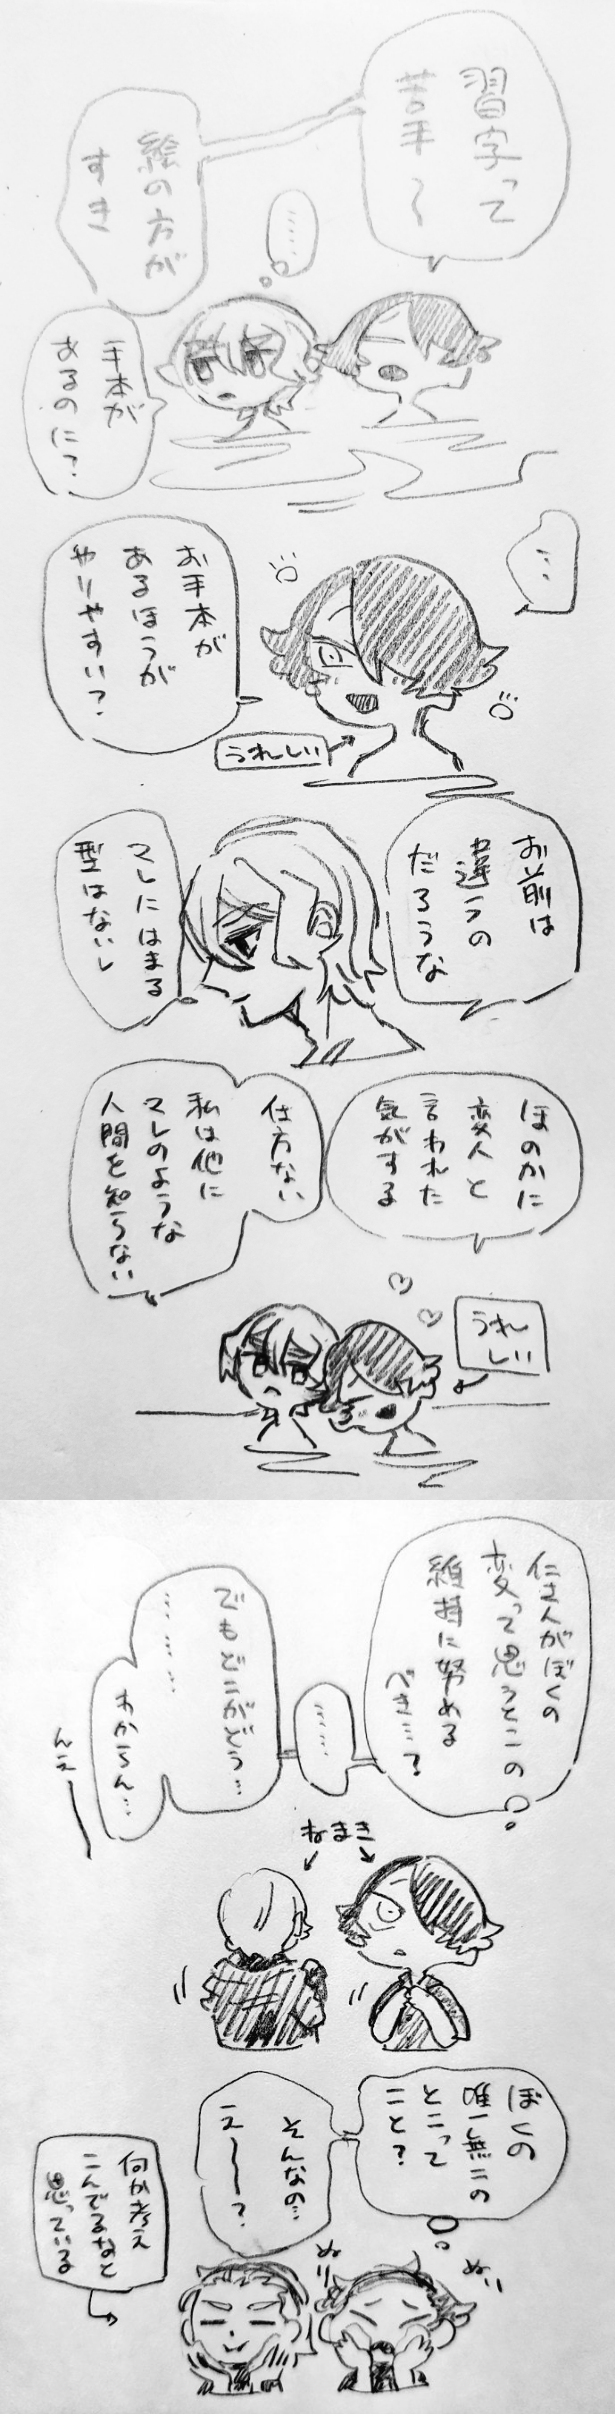 習字って
苦手〜
絵の方が
すき
……
手本が
あるのに？
…
お手本が
あるほうが
やりやすい？
うれしい
お前は
違うの
だろうな
マレにはまる
型はないし
ほのかに
変人と
言われた
気がする
仕方ない
私は他に
マレのような
人間を知らない
うれ
しい
仁さんがぼくの
変って思うとこの
維持に努める
べき…？
……
でもどこがどう…
……
わからん…
んえー
ねまき
ぼくの
唯一無二の
とこって
こと？
そんなの…
え〜〜？
ぬり
ぬり
何か考え
こんでるなと
思っている